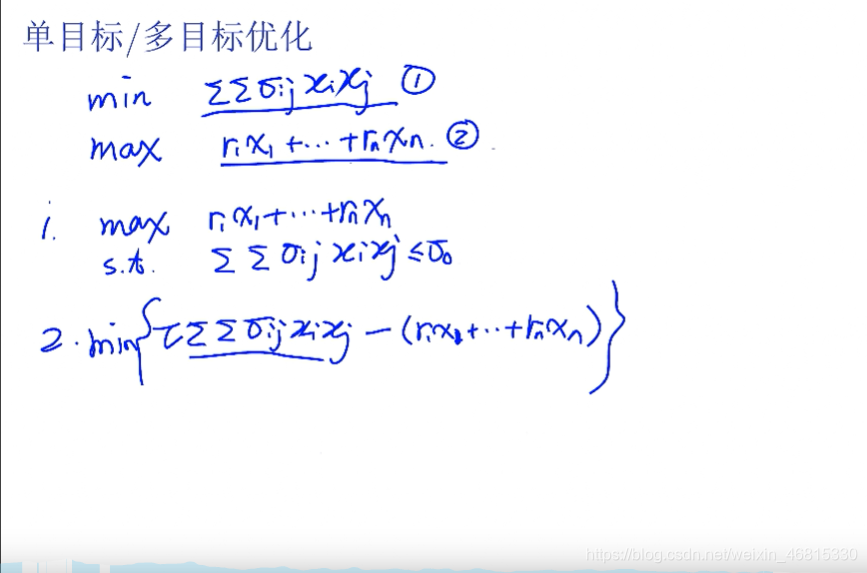 单目标/多目标优化
min ΣΣσij xixj ①
max r1x1+…+rnxn. ②
1. max r1x1+…+rnxn
s.t. ΣΣσij xixj ≤ σ0
2. min{τΣΣσij xixj − (r1x1+…+rnxn)}
https://blog.csdn.net/weixin_46815330